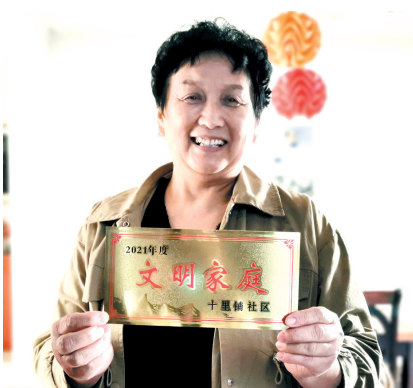 2021年度
文明家庭
十里铺社区